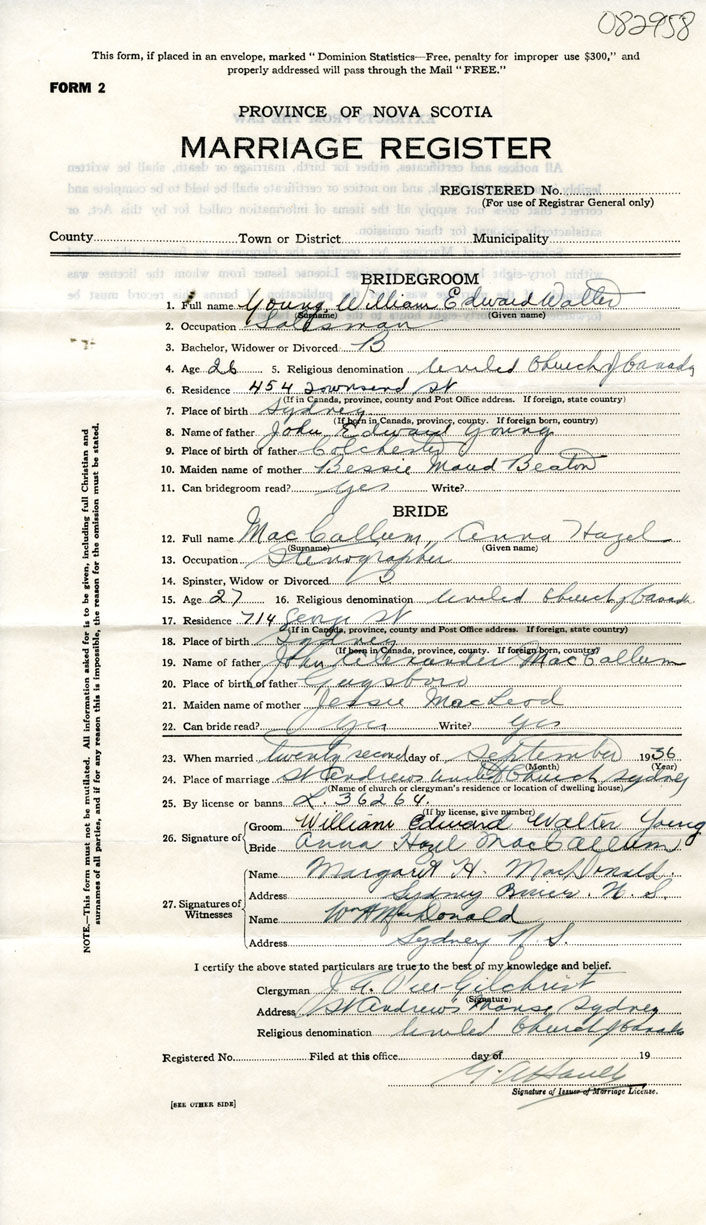 082958
This form, if placed in an envelope, marked "Dominion Statistics—Free, penalty for improper use $300," and
properly addressed will pass through the Mail "FREE."
FORM 2
PROVINCE OF NOVA SCOTIA
MARRIAGE REGISTER
REGISTERED No.
(For use of Registrar General only)
County Town or District Municipality
BRIDEGROOM
1. Full name Young, William Edward Walter
(Surname) (Given name)
2. Occupation Salesman
3. Bachelor, Widower or Divorced B
4. Age 26 5. Religious denomination United Church of Canada
6. Residence 454 Townsend St
(If in Canada, province, county and Post Office address. If foreign, state country)
7. Place of birth Sydney
(If born in Canada, province, county. If foreign born, country)
8. Name of father John Edward Young
9. Place of birth of father Colchester
10. Maiden name of mother Bessie Maud Beaton
11. Can bridegroom read? Yes Write?
BRIDE
12. Full name MacCallum, Anna Hazel
(Surname) (Given name)
13. Occupation Stenographer
14. Spinster, Widow or Divorced S
15. Age 27 16. Religious denomination United Church of Canada
17. Residence 714 George St
(If in Canada, province, county and Post Office address. If foreign, state country)
18. Place of birth Sydney
(If born in Canada, province, county. If foreign born, country)
19. Name of father John Alexander MacCallum
20. Place of birth of father Guysboro
21. Maiden name of mother Jessie MacLeod
22. Can bride read? Yes Write? Yes
23. When married twenty second day of September 1936
(Month) (Year)
24. Place of marriage St Andrews United Church Sydney
(Name of church or clergyman's residence or location of dwelling house)
25. By license or banns L. 36264.
(If by license, give number)
26. Signature of Groom William Edward Walter Young
Bride Anna Hazel MacCallum
27. Signatures of Witnesses
Name Margaret H. MacDonald.
Address Sydney Mines. N. S.
Name Wm A MacDonald
Address Sydney N. S.
I certify the above stated particulars are true to the best of my knowledge and belief.
Clergyman Gilchrist
(Signature)
Address St Andrews Manse, Sydney
Religious denomination United Church of Canada
Registered No. Filed at this office day of 19
Signature of Issuer of Marriage License.
[SEE OTHER SIDE]
NOTE.—This form must not be mutilated. All information asked for is to be given, including full Christian and
surnames of all parties, and if for any reason this is impossible, the reason for the omission must be stated.